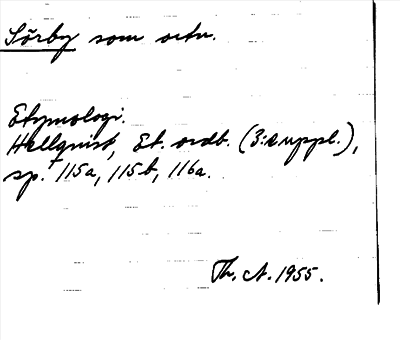 Sörby som ortn.
Etymologi.
Hellquist, Et. ordb. (3:e uppl.),
sp. 115a, 115b, 116a.
Th. A. 1955.